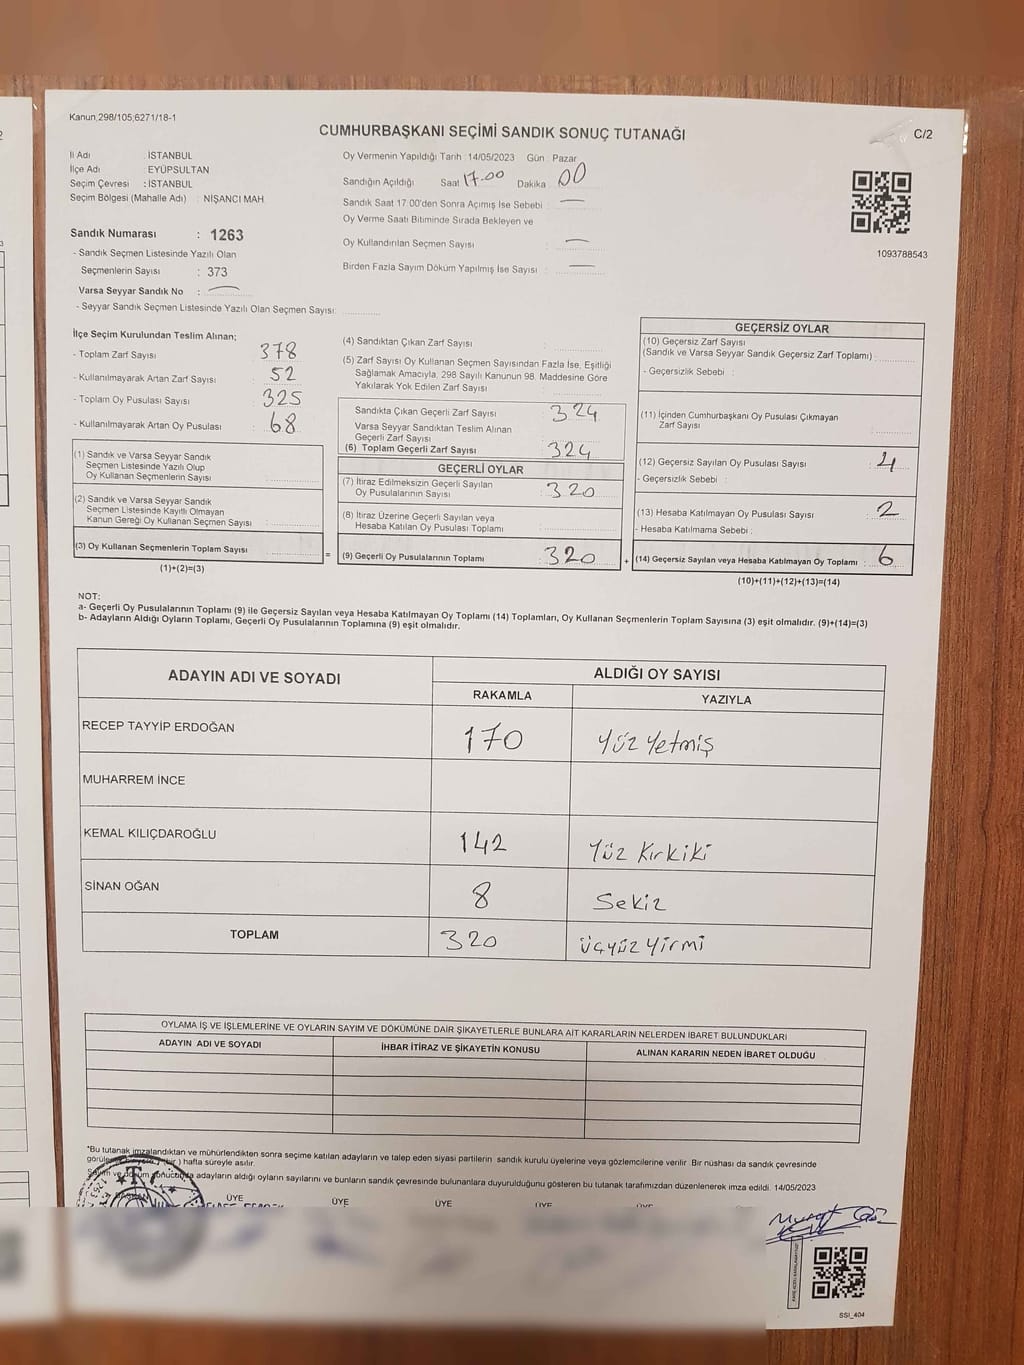 Kanun,298/105;6271/18-1
CUMHURBAŞKANI SEÇİMİ SANDIK SONUÇ TUTANAĞI
C/2
İl Adı : İSTANBUL
İlçe Adı : EYÜPSULTAN
Seçim Çevresi : İSTANBUL
Seçim Bölgesi (Mahalle Adı) : NİŞANCI MAH
Sandık Numarası : 1263
- Sandık Seçmen Listesinde Yazılı Olan
Seçmenlerin Sayısı : 373
Varsa Seyyar Sandık No :
- Seyyar Sandık Seçmen Listesinde Yazılı Olan Seçmen Sayısı:
Oy Vermenin Yapıldığı Tarih :14/05/2023 Gün Pazar
Sandığın Açıldığı Saat 17.00 Dakika 00
Sandık Saat 17.00'den Sonra Açımış İse Sebebi :
Oy Verme Saati Bitiminde Sırada Bekleyen ve
Oy Kullandırılan Seçmen Sayısı :
Birden Fazla Sayım Döküm Yapılmış İse Sayısı :
1093788543
İlçe Seçim Kurulundan Teslim Alınan;
- Toplam Zarf Sayısı : 378
- Kullanılmayarak Artan Zarf Sayısı : 52
- Toplam Oy Pusulası Sayısı : 325
- Kullanılmayarak Artan Oy Pusulası : 68
(1) Sandık ve Varsa Seyyar Sandık
Seçmen Listesinde Yazılı Olup
Oy Kullanan Seçmenlerin Sayısı :
(2) Sandık ve Varsa Seyyar Sandık
Seçmen Listesinde Kayıtlı Olmayan
Kanun Gereği Oy Kullanan Seçmen Sayısı :
(3) Oy Kullanan Seçmenlerin Toplam Sayısı :
(1)+(2)=(3)
=
(4) Sandıktan Çıkan Zarf Sayısı :
(5) Zarf Sayısı Oy Kullanan Seçmen Sayısından Fazla İse, Eşitliği
Sağlamak Amacıyla, 298 Sayılı Kanunun 98. Maddesine Göre
Yakılarak Yok Edilen Zarf Sayısı :
Sandıkta Çıkan Geçerli Zarf Sayısı : 324
Varsa Seyyar Sandıktan Teslim Alınan
Geçerli Zarf Sayısı :
(6) Toplam Geçerli Zarf Sayısı : 324
GEÇERLİ OYLAR
(7) İtiraz Edilmeksizin Geçerli Sayılan
Oy Pusulalarının Sayısı : 320
(8) İtiraz Üzerine Geçerli Sayılan veya
Hesaba Katılan Oy Pusulası Toplamı :
(9) Geçerli Oy Pusulalarının Toplamı : 320
+
GEÇERSİZ OYLAR
(10) Geçersiz Zarf Sayısı
(Sandık ve Varsa Seyyar Sandık Geçersiz Zarf Toplamı) :
- Geçersizlik Sebebi :
(11) İçinden Cumhurbaşkanı Oy Pusulası Çıkmayan
Zarf Sayısı :
(12) Geçersiz Sayılan Oy Pusulası Sayısı : 4
- Geçersizlik Sebebi :
(13) Hesaba Katılmayan Oy Pusulası Sayısı : 2
- Hesaba Katılmama Sebebi :
(14) Geçersiz Sayılan veya Hesaba Katılmayan Oy Toplamı : 6
(10)+(11)+(12)+(13)=(14)
NOT:
a- Geçerli Oy Pusulalarının Toplamı (9) ile Geçersiz Sayılan veya Hesaba Katılmayan Oy Toplamı (14) Toplamları, Oy Kullanan Seçmenlerin Toplam Sayısına (3) eşit olmalıdır. (9)+(14)=(3)
b- Adayların Aldığı Oyların Toplamı, Geçerli Oy Pusulalarının Toplamına (9) eşit olmalıdır.
ADAYIN ADI VE SOYADI
ALDIĞI OY SAYISI
RAKAMLA YAZIYLA
RECEP TAYYİP ERDOĞAN 170 Yüz Yetmiş
MUHARREM İNCE
KEMAL KILIÇDAROĞLU 142 Yüz Kırkiki
SİNAN OĞAN 8 Sekiz
TOPLAM 320 üçyüz Yirmi
OYLAMA İŞ VE İŞLEMLERİNE VE OYLARIN SAYIM VE DÖKÜMÜNE DAİR ŞİKAYETLERLE BUNLARA AİT KARARLARIN NELERDEN İBARET BULUNDUKLARI
ADAYIN ADI VE SOYADI İHBAR İTİRAZ VE ŞİKAYETİN KONUSU ALINAN KARARIN NEDEN İBARET OLDUĞU
*Bu tutanak imzalandıktan ve mühürlendikten sonra seçime katılan adayların ve talep eden siyasi partilerin sandık kurulu üyelerine veya gözlemcilerine verilir. Bir nüshası da sandık çevresinde
(bir) hafta süreyle asılır.
adayların aldığı oyların sayılarını ve bunların sandık çevresinde bulunanlara duyurulduğunu gösteren bu tutanak tarafımızdan düzenlenerek imza edildi. 14/05/2023
ÜYE ÜYE ÜYE ÜYE
SSI_404